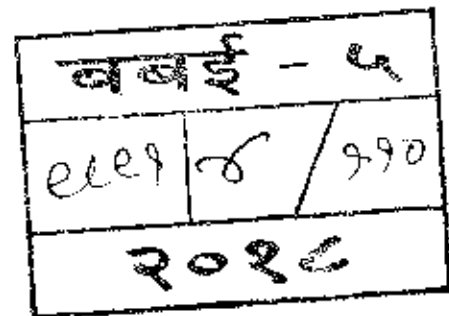 बबई - ५
९८९१ ४ / ११०
२०१८